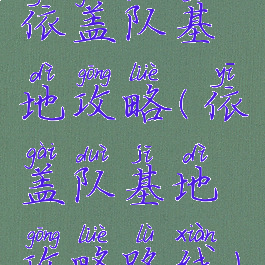 依盖队基
dì gōng lüè yī
地攻略(依
gài duì jī dì
盖队基地
gōng lüè lù xiàn
攻略路线)